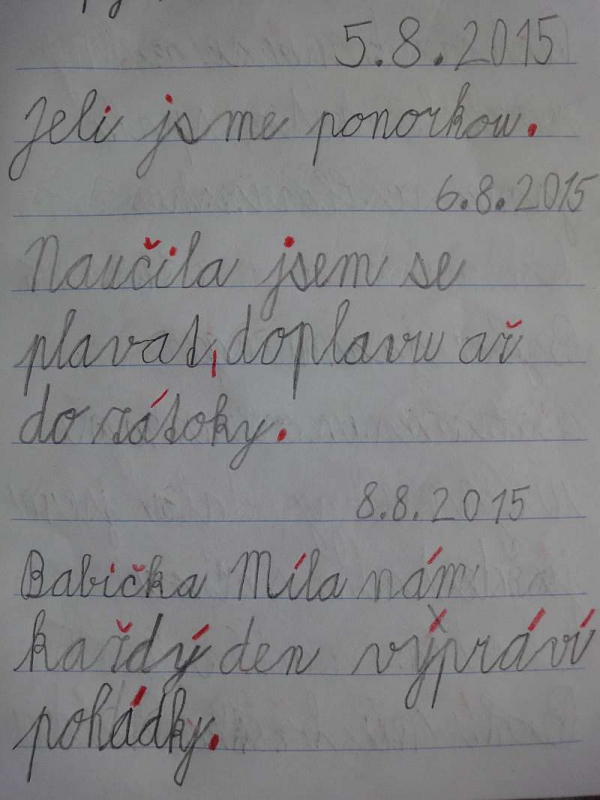 5.8.2015
Jeli jsme ponorkou.
6.8.2015
Naučila jsem se
plavat, doplavu až
do zátoky.
8.8.2015
Babička Míla nám
každý den výpráví
pohádky.